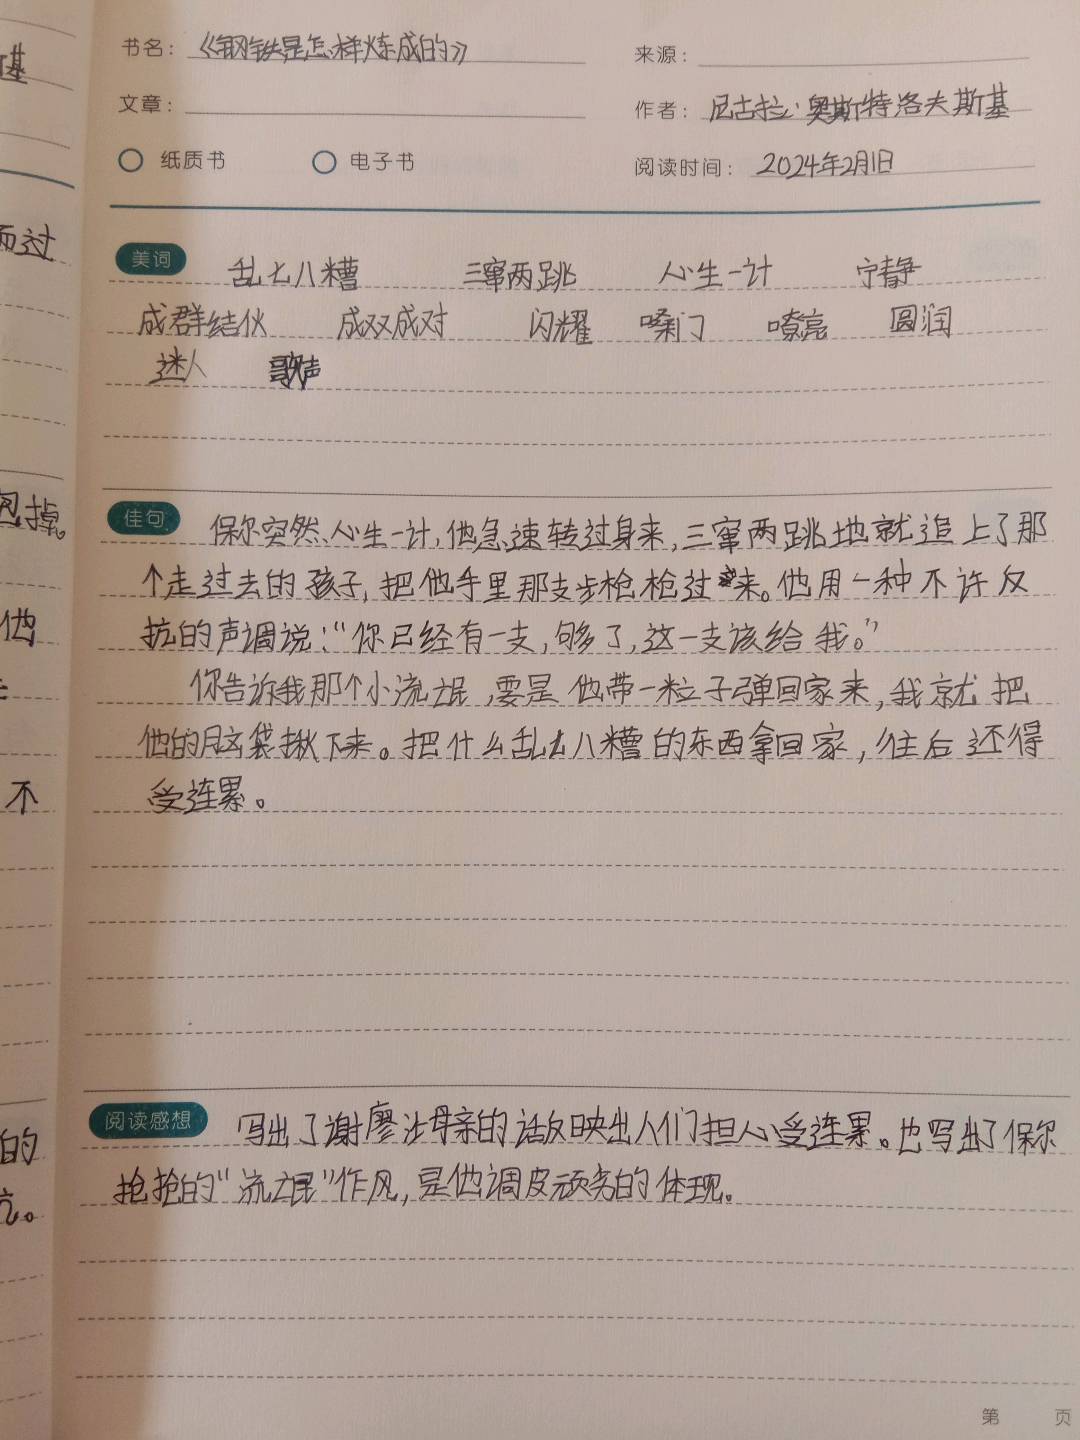 书名：《钢铁是怎样炼成的》
来源：
文章：
作者：尼古拉·奥斯特洛夫斯基
纸质书 电子书
阅读时间：2024年2月1日
美词 乱七八糟 三窜两跳 心生一计 宁静
成群结伙 成双成对 闪耀 嗓门 嘹亮 圆润
迷人 歌声
佳句 保尔突然心生一计，他急速转过身来，三窜两跳地就追上了那
个走过去的孩子，把他手里那支步枪枪过来。他用一种不许反
抗的声调说：“你已经有一支，够了，这一支该给我。”
你告诉我那个小流氓，要是他带一粒子弹回家来，我就把
他的脑袋揪下来。把什么乱七八糟的东西拿回家，往后还得
受连累。
阅读感想 写出了谢廖沙母亲的话反映出人们担心受连累。也写出了保尔
抢抢的“流氓”作风，是他调皮顽劣的体现。
第 页
而过
掉。
他
不
的